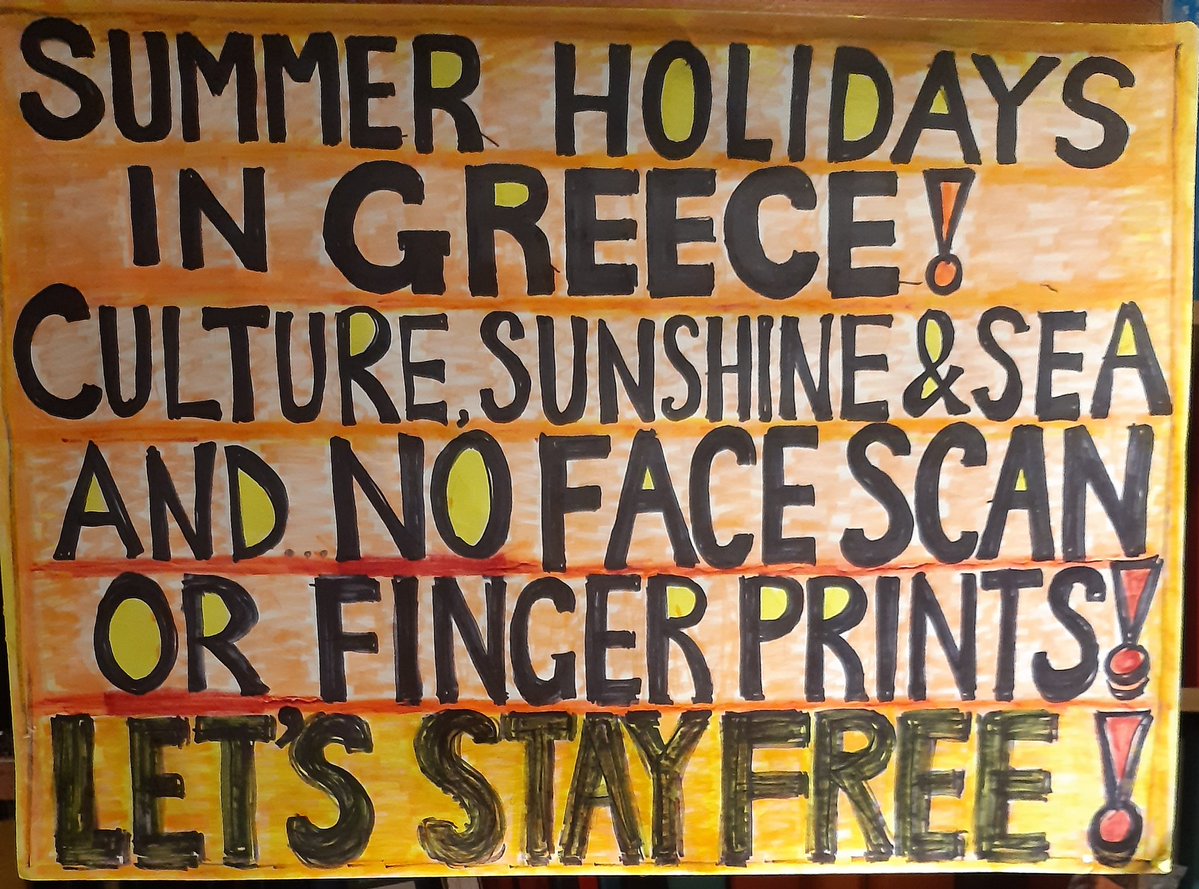 SUMMER HOLIDAYS
IN GREECE!
CULTURE, SUNSHINE & SEA
AND... NO FACE SCAN
OR FINGER PRINTS!
LET'S STAY FREE!